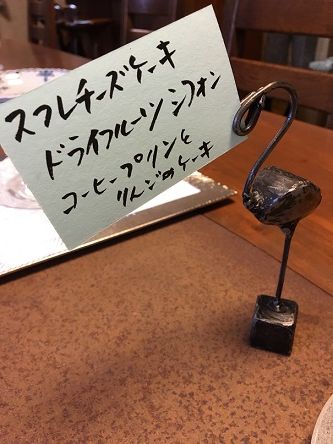 スフレチーズケーキ
ドライフルーツシフォン
コーヒープリンと
りんごのケーキ